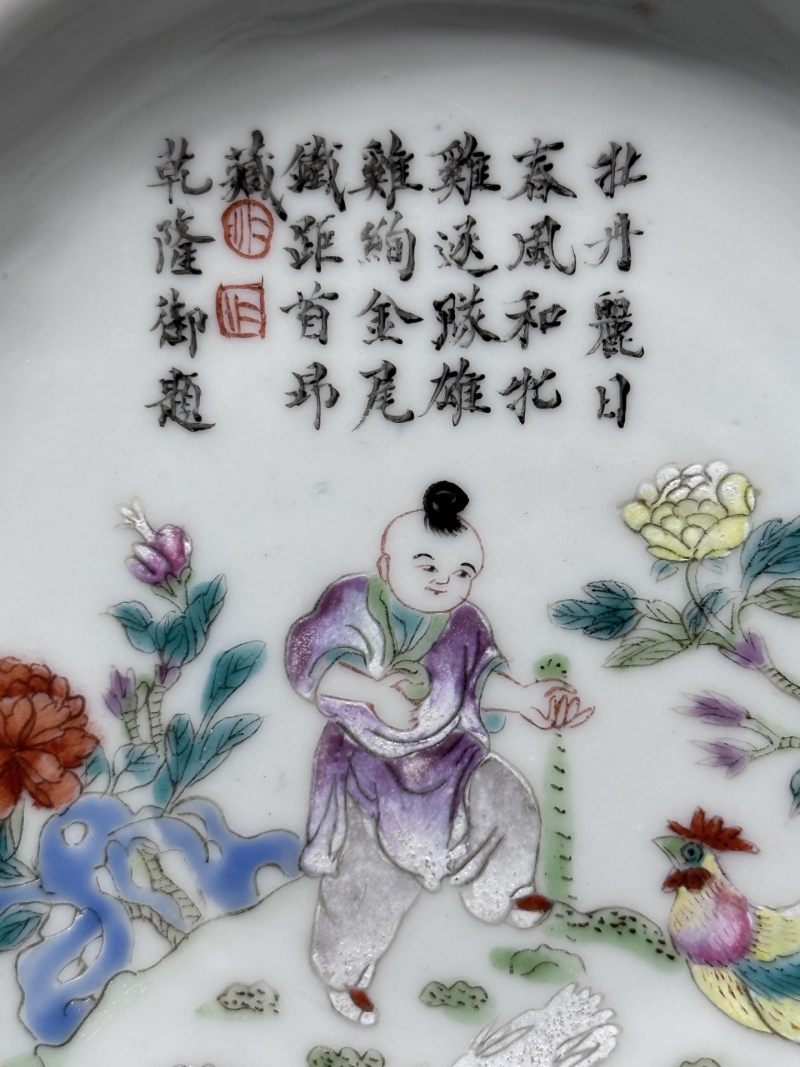 牡丹麗日
春風和牝
雞逐隊雄
雞絢金尾
鐵距首昂
藏
乾隆御題